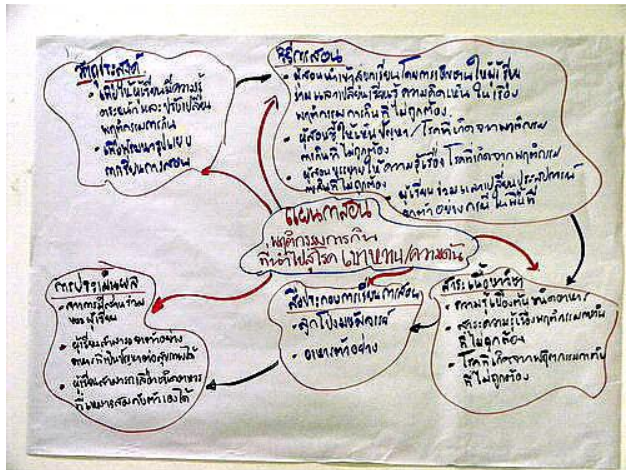 วัตถุประสงค์
• เพื่อให้ผู้เรียนมีความรู้
ตระหนักและปรับเปลี่ยน
พฤติกรรมการกิน
• เพื่อพัฒนารูปแบบ
การเรียนการสอน
วิธีการสอน
• ผู้สอนนำเข้าสู่บทเรียนโดยการ ให้ผู้เรียน
ร่วมแลกเปลี่ยนเรียนรู้ ความคิดเห็น ในเรื่อง
พฤติกรรมการกินที่ไม่ถูกต้อง
• ผู้สอนชี้ให้เห็นปัญหา/โรคที่เกิดจากพฤติกรรม
การกินที่ไม่ถูกต้อง
• ผู้สอนบรรยายให้ความรู้เรื่องโรคที่เกิดจากพฤติกรรม
การกินที่ไม่ถูกต้อง
• ผู้เรียนร่วมแลกเปลี่ยนประสบการณ์
ยกตัวอย่างกรณีในพื้นที่
แผนการสอน
พฤติกรรมการกิน
ที่นำไปสู่โรค เบาหวาน/ความดัน
การประเมินผล
• จากการมีส่วนร่วม
ของผู้เรียน
• ผู้เรียนสามารถยกตัวอย่าง
อาหารที่เป็นปัญหาต่อสุขภาพได้
• ผู้เรียนสามารถเลือกชนิดอาหาร
ที่เหมาะสมกับตัวเองได้
สื่อประกอบการเรียนการสอน
• ลูกโป่งมหัศจรรย์
• อาหารตัวอย่าง
สาระเนื้อหาวิชา
• ความรู้เบื้องต้น ชนิดอาหาร
• สาระความรู้เรื่องพฤติกรรมการกิน
ที่ไม่ถูกต้อง
• โรคที่เกิดจากพฤติกรรมการกิน
ที่ไม่ถูกต้อง